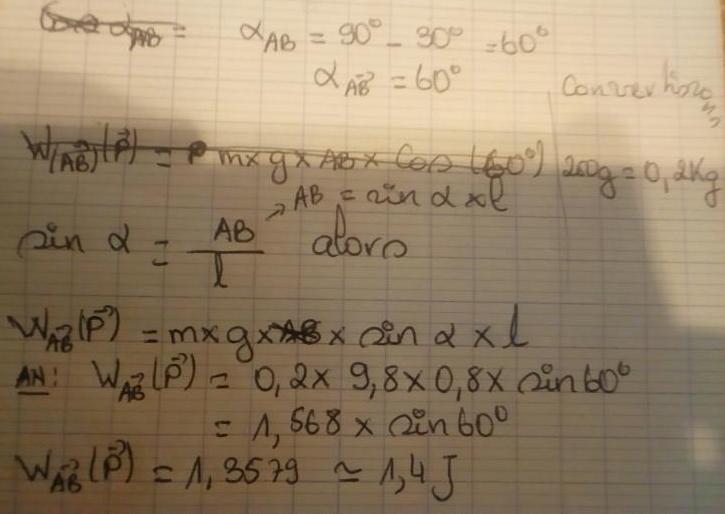 α_AB = α_AB = 90° - 30° = 60°
α_A⃗B = 60°
W_(A⃗B)(P⃗) = P m×g×AB×Cos(60°) 200g = 0,2Kg
→ AB = sin α×l
sin α = AB/l alors
W_A⃗B(P⃗) = m×g×AB× sin α × l
AN: W_A⃗B(P⃗) = 0,2× 9,8×0,8× sin60°
= 1,568 × sin60°
W_A⃗B(P⃗) = 1,3579 ≃ 1,4J